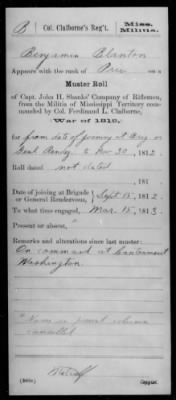 B | Col. Claiborne's Reg't. | Miss. Militia.
Benjamin Blanton
Appears with the rank of Priv on a
Muster Roll
of Capt. John H. Shanks' Company of Riflemen,
from the Militia of Mississippi Territory com-
manded by Col. Ferdinand L. Claiborne,
War of 1812,
for from date of joining at Brig or
Genl Rendz to Nov 30, 1812
Roll dated not dated
, 181
Date of joining at Brigade
or General Rendezvous, Sept 15, 1812
To what time engaged, Mar 15, 1813.
Present or absent,
Remarks and alterations since last muster:
On command at Cantonment
Washington
*Name in present column
cancelled
Copyist.